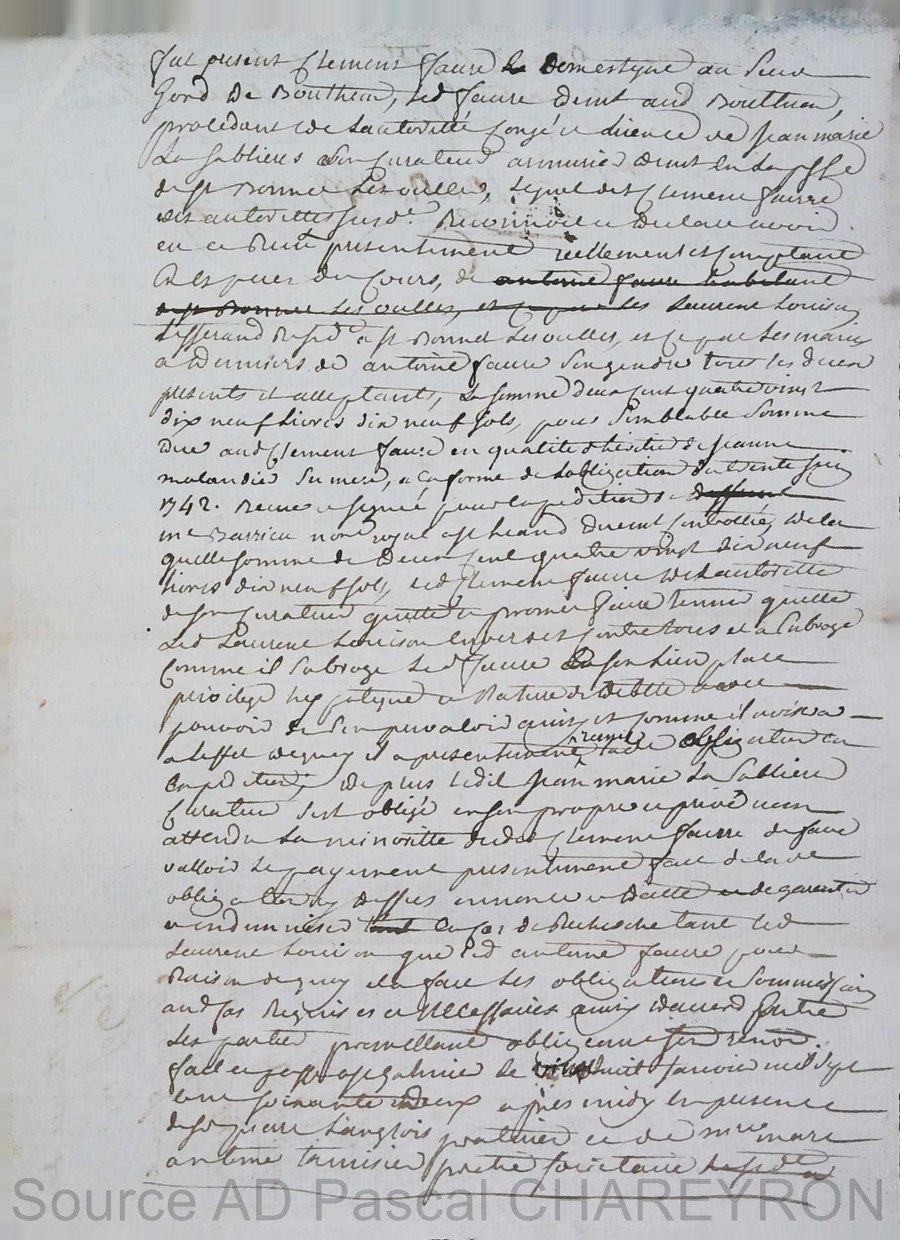 fut present Clement faure domestique au sieur
Gord de Boutheon, led faure demt aud Bouthéon,
procédant de lautorité congé et licence de Jean marie
La Sabliere son curateur armurier demt en la psse
de st Bonnet Les oulles, lequel dit Clement faure
des autorittes susd. Reconnoit et declare avoir
eu et Receu presentement reellement et comptant
en espèces du cours, de antoine faure habitant
a st Bonnet Les oulles, et Laurent Louison
tisserand Resid a st Bonnet Les oulles, et ce par les mains
et deniers de antoine faure son gendre tous les deux
presents et acceptants, La somme deux cent quatre vingt
dix neuf livres dix neuf sols, pour semblable somme
due aud Clement faure en qualité d'heritier de Jeanne
malandie sa mere, a la forme de Lobligation du trente Juin
1742. Receue et signée pour expedition
me Barrieu nore royal a st heand duemt controllée, de la
quelle somme de Deux cent quatre vingt dix neuf
livres dix neuf sols, led Clement faure de lautoritte
de son Curateur quitte et promet faire tenir quitte
Led Laurent Louison envers et contre tous et a subrogé
comme il subroge Led faure en son lieu place
privilege hypoteque et Nature de debtte avec
pouvoir de s'en prevaloir ainsy et comme il avisera
a Leffet dequoy il a presentement remis lade obligation en
Expedition, de plus ledit Jean marie La Sabliere
Curateur s'est obligé en son propre et privé nom
attendu La minoritte dudit Clement faure de faire
valloir Le payement presentement fait de lade
obligation cy dessus enoncée et dattée et de garentir
et indemniser en cas de Recherche tant led
Laurent Louison que led antoine faure pour
Raison dequoy il a fait Les obligations et soumissions
aud cas Requis et et Necessaires ainsy daccord entre
Les parties promettant obligeant renon.
fait et passé a st Galmier le huit Janvier mil sept
cent soixante deux apres midy En presence
de sr pierre Langlois praticien et de mre marc
antoine tamisier pretre societaire
Source AD Pascal CHAREYRON